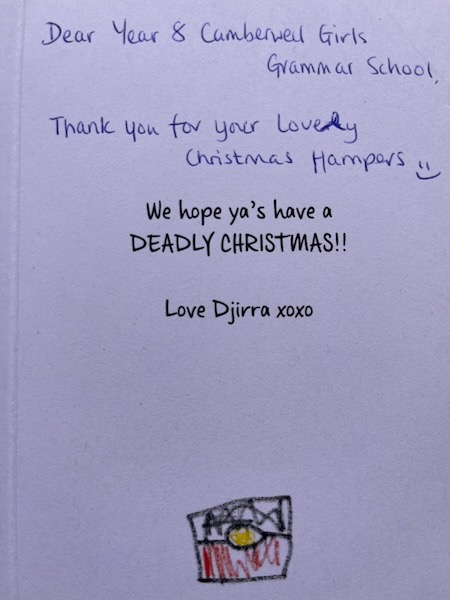 Dear Year 8 Camberwell Girls
Grammar School,
Thank you for your Lovely
Christmas Hampers
We hope ya's have a
DEADLY CHRISTMAS!!
Love Djirra xoxo